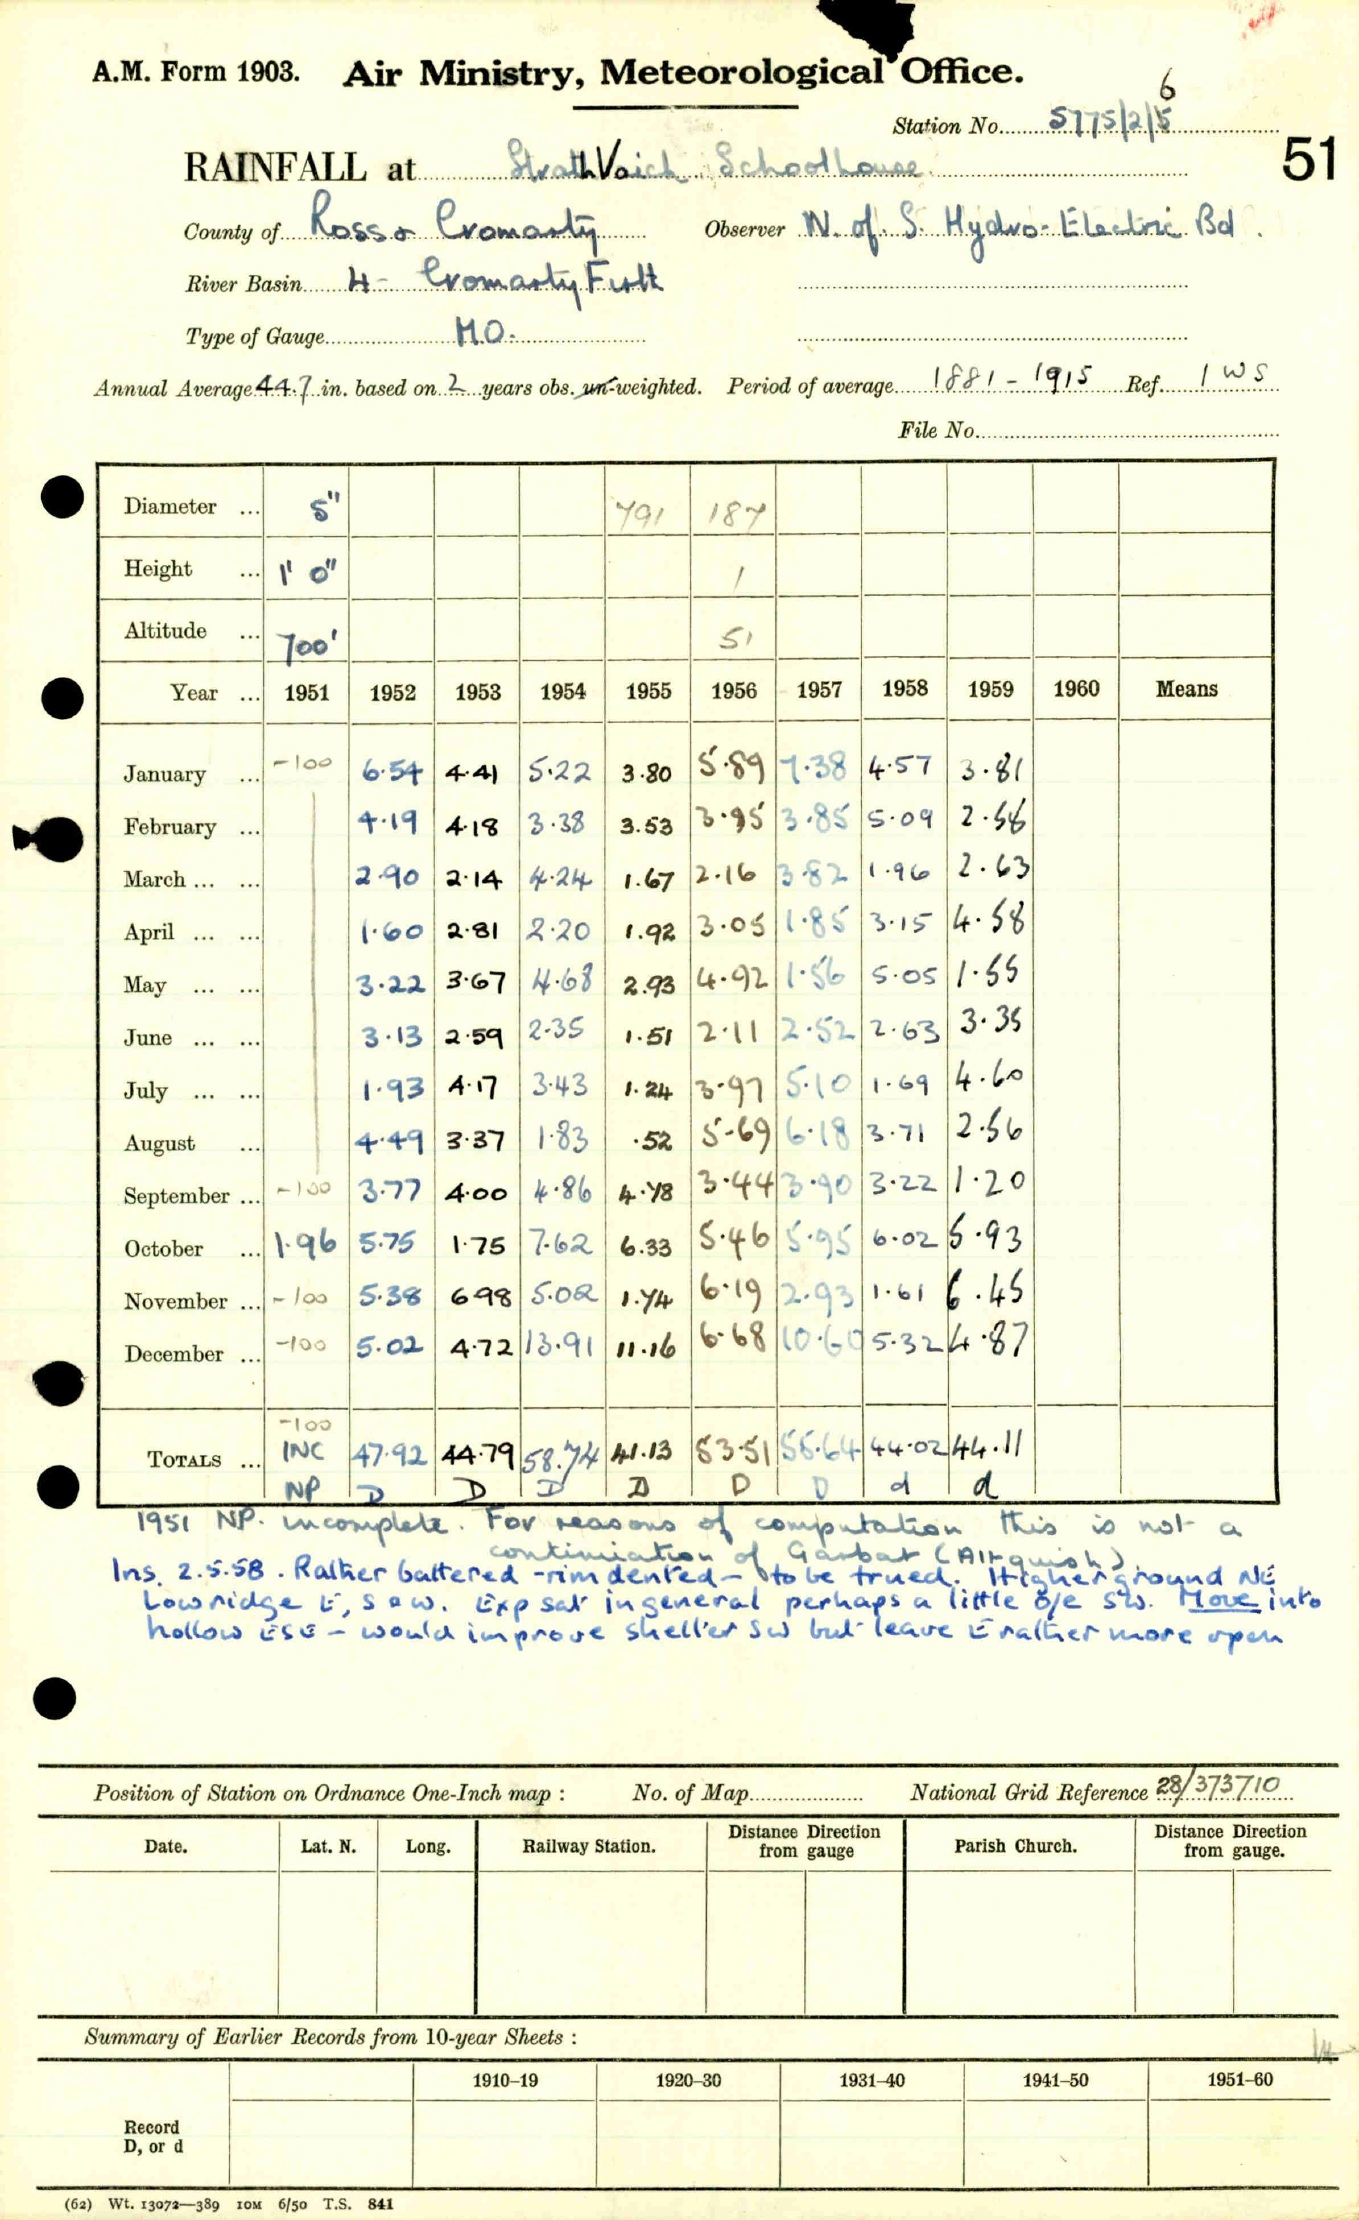 A.M. Form 1903. Air Ministry, Meteorological Office.
6
Station No. 5775/2/5
51
RAINFALL at StrathVaich Schoolhouse
County of Ross & Cromarty Observer N. of S. Hydro-Electric Bd.
River Basin 4- Cromarty Firth
Type of Gauge M.O.
Annual Average 44.7 in. based on 2 years obs. un-weighted. Period of average 1881-1915 Ref. 1 WS
File No.
Diameter ... 5" 791 187
Height ... 1' 0" 1
Altitude ... 700' 51
Year ... 1951 1952 1953 1954 1955 1956 1957 1958 1959 1960 Means
January ... -100 6.54 4.41 5.22 3.80 5.89 7.38 4.57 3.81
February ... 4.19 4.18 3.38 3.53 3.95 3.85 5.09 2.58
March ... ... 2.90 2.14 4.24 1.67 2.16 3.82 1.96 2.63
April ... ... 1.60 2.81 2.20 1.92 3.05 1.85 3.15 4.58
May ... ... 3.22 3.67 4.68 2.93 4.92 1.56 5.05 1.55
June ... ... 3.13 2.59 2.35 1.51 2.11 2.52 2.63 3.35
July ... ... 1.93 4.17 3.43 1.24 3.97 5.10 1.69 4.60
August ... 4.49 3.37 1.83 .52 5.69 6.18 3.71 2.56
September ... -100 3.77 4.00 4.86 4.78 3.44 3.90 3.22 1.20
October ... 1.96 5.75 1.75 7.62 6.33 5.46 5.95 6.02 5.93
November ... -100 5.38 6.98 5.02 1.74 6.19 2.93 1.61 6.45
December ... -100 5.02 4.72 13.91 11.16 6.68 10.60 5.32 4.87
-100
TOTALS ... INC 47.92 44.79 58.74 41.13 53.51 55.64 44.02 44.11
NP D D D D D D d d
1951 NP. incomplete. For reasons of computation this is not a
continuation of Garbat (Altguish).
Ins. 2.5.58. Rather battered - rim dented - to be trued. Higher ground NE
Low ridge E, S & W. Exp sat in general perhaps a little o/e SW. Move into
hollow ESE - would improve shelter SW but leave E rather more open
Position of Station on Ordnance One-Inch map : No. of Map National Grid Reference 28/373710
Date. Lat. N. Long. Railway Station. Distance Direction from gauge Parish Church. Distance Direction from gauge.
Summary of Earlier Records from 10-year Sheets :
1910–19 1920–30 1931–40 1941–50 1951–60
Record
D, or d
(62) Wt. 13072—389 10M 6/50 T.S. 841